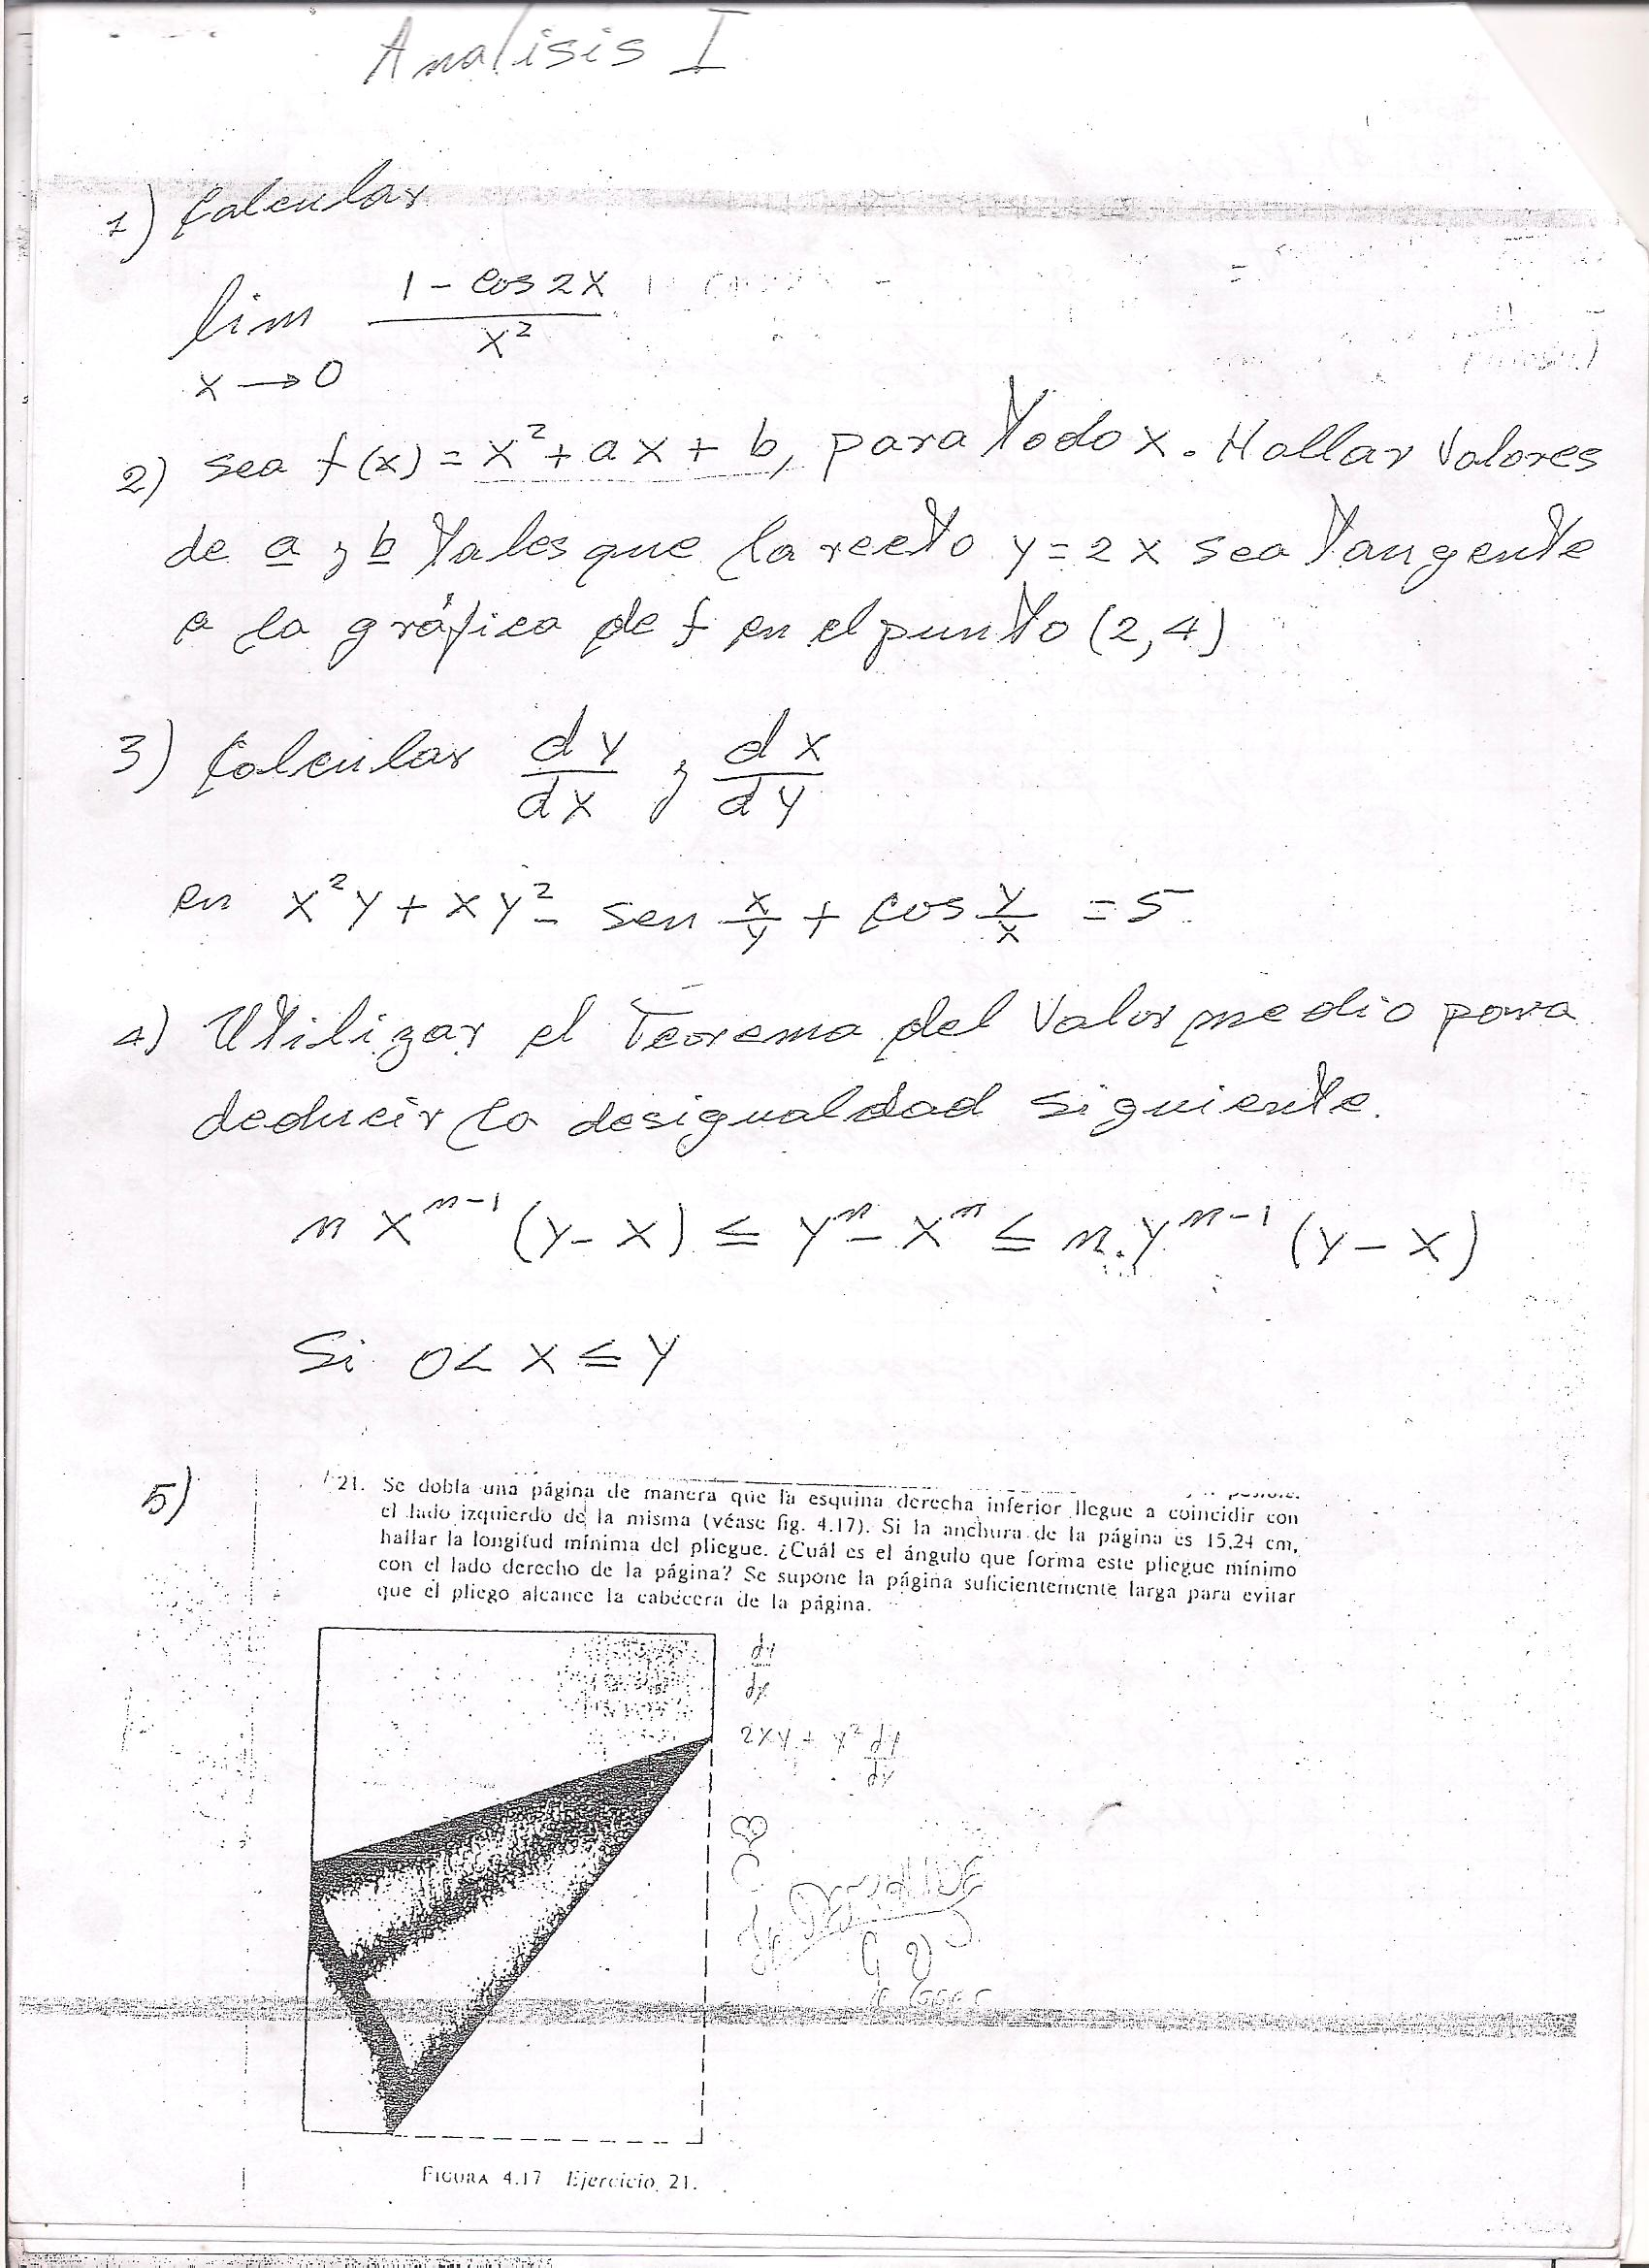 Analisis I
1) Calcular
lim 1 - cos 2x / x²
x → 0
2) sea f(x) = x² + ax + b, para todo x. Hallar valores
de a y b tales que la recta y = 2x sea tangente
a la gráfica de f en el punto (2,4)
3) Calcular dy/dx y dx/dy
en x²y + xy² - sen x/y + cos y/x = 5
4) Utilizar el Teorema del Valor medio para
deducir la desigualdad siguiente.
n x^(n-1) (y - x) ≤ y^n - x^n ≤ n.y^(n-1) (y - x)
Si 0 < x ≤ y
5)
21. Se dobla una página de manera que la esquina derecha inferior llegue a coincidir con
el lado izquierdo de la misma (véase fig. 4.17). Si la anchura de la página es 15,24 cm,
hallar la longitud mínima del pliegue. ¿Cuál es el ángulo que forma este pliegue mínimo
con el lado derecho de la página? Se supone la página suficientemente larga para evitar
que el pliego alcance la cabecera de la página.
dy/dx
2xy + x² dy/dx
FIGURA 4.17 Ejercicio 21.